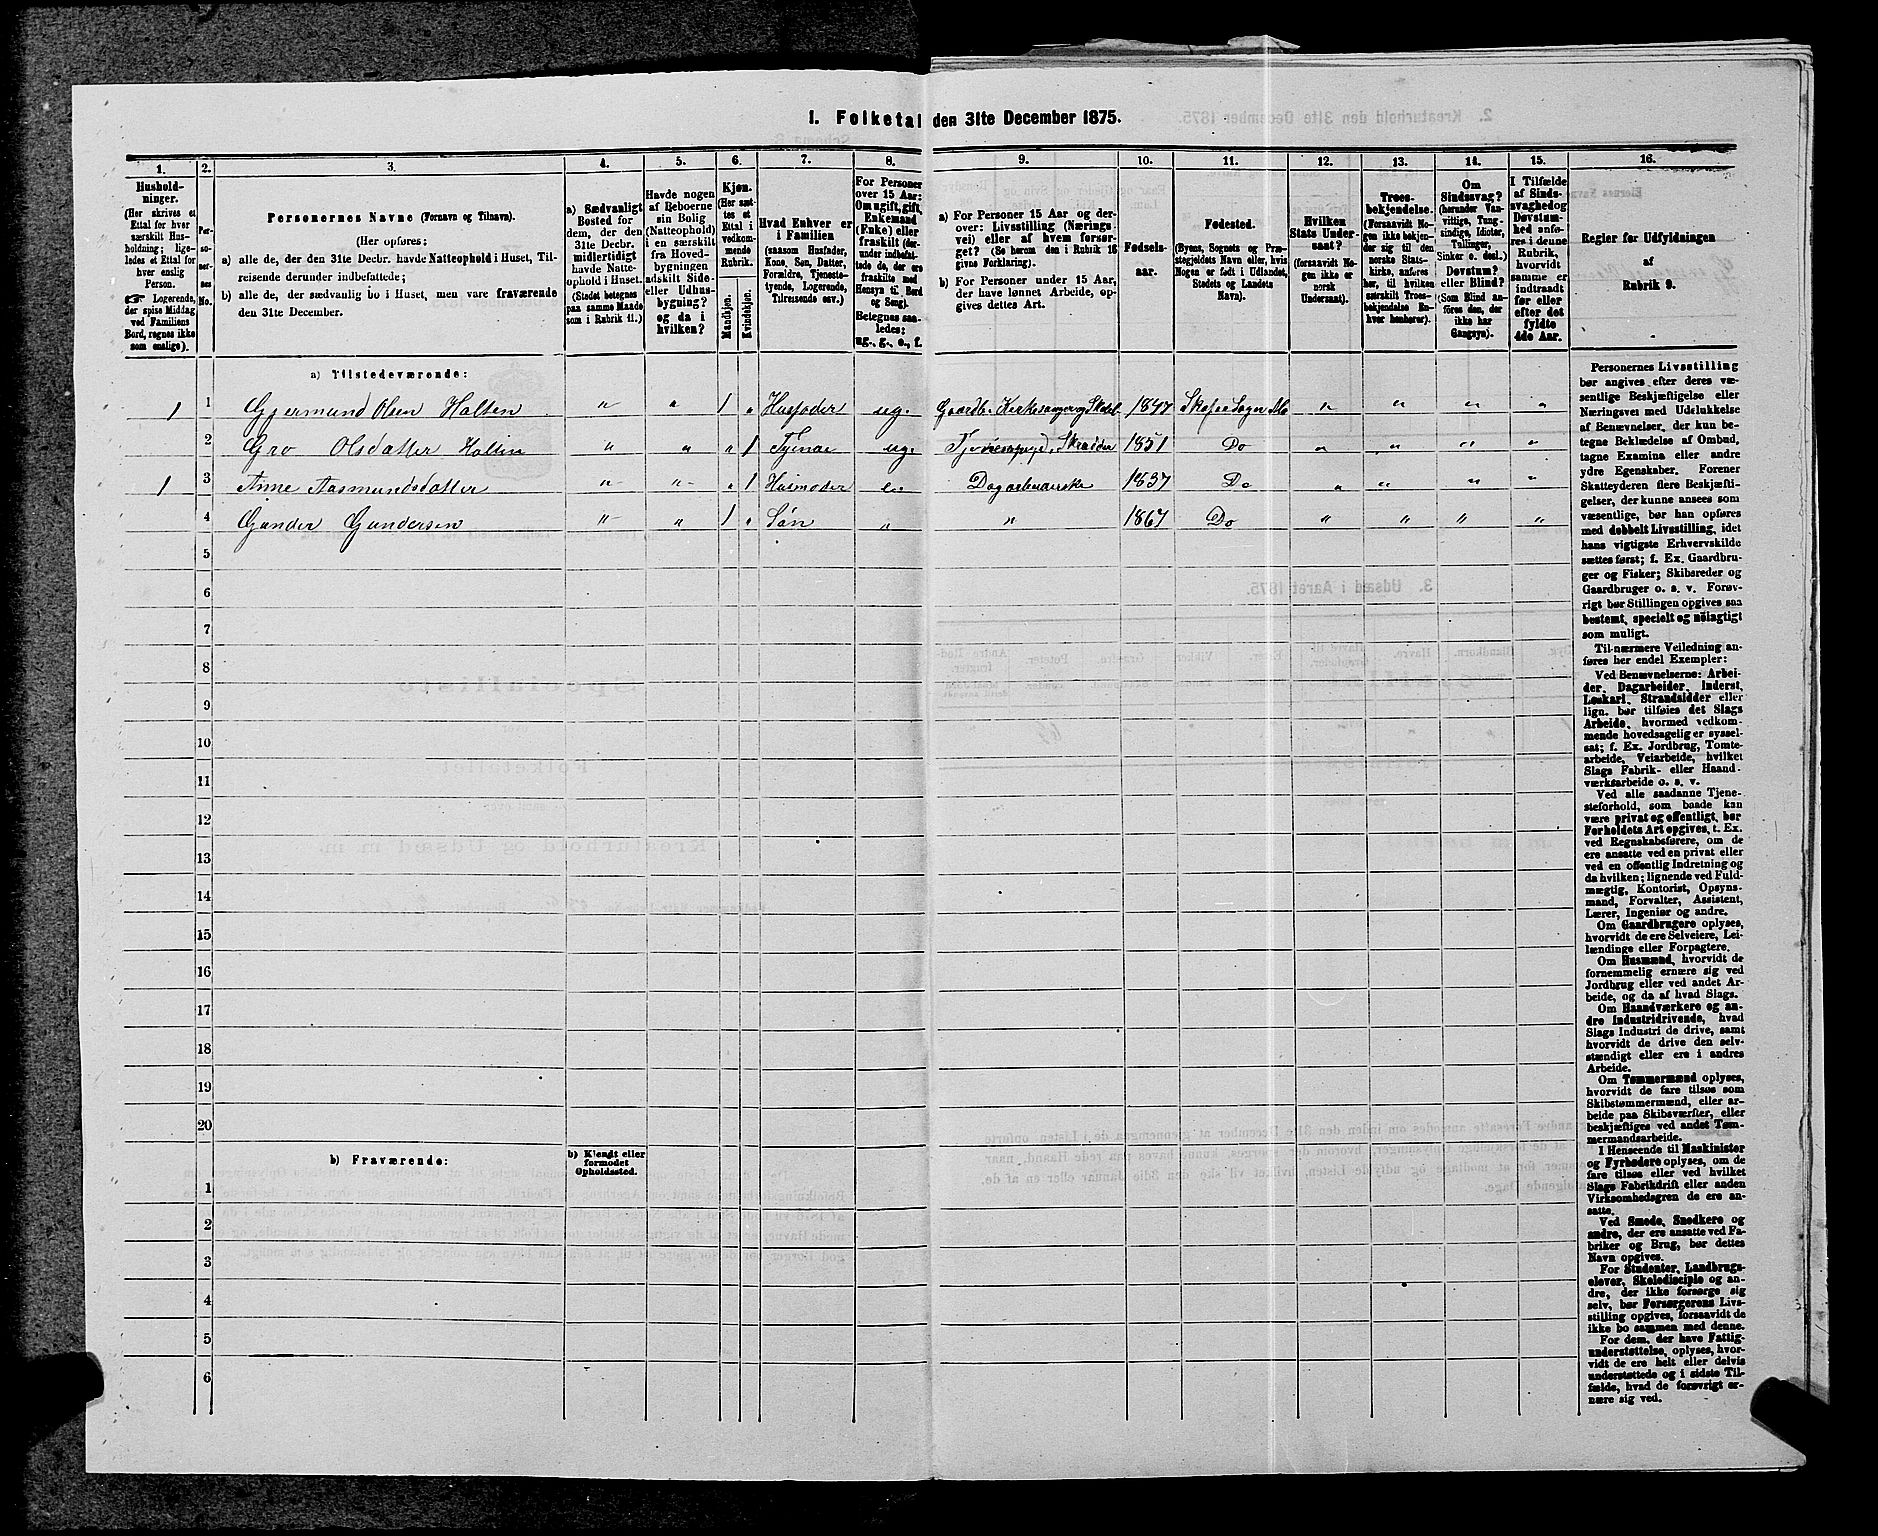 1. Folketal den 31te December 1875.
1. 2. 3. 4. 5. 6. 7. 8. 9. 10. 11. 12. 13. 14. 15. 16.
Hushold-
ninger.
(Her skrives et
Ettal for hver
særskilt Hus-
holdning; lige-
ledes et Ettal for
hver enslig
Person.
☞ Logerende,
der spise Middag
ved Familiens
Bord, regnes ikke
som enslige).
Per-
so-
ner-
nes
No.
Personernes Navne (Fornavn og Tilnavn).
(Her opføres:
a) alle de, der den 31te Decbr. havde Natteophold i Huset, Til-
reisende derunder indbefattede;
b) alle de, der sædvanlig bo i Huset, men vare fraværende
den 31te December.
a) Sædvanligt
Bosted for
dem, der den
31te Decbr.
midlertidigt
havde Natte-
ophold i Huset.
(Stedet betegnes
paa samme Maade
som i Rubrik 11.)
Havde nogen
af Beboerne
sin Bolig
(Natteophold)
i en særskilt
fra Hoved-
bygningen
adskilt Side-
eller Udhus-
bygning?
og da i
hvilken?
Kjøn.
(Her sæt-
tes et
Ettal i
vedkom-
mende
Rubrik.
Mandkjøn.
Kvindekjøn.
Hvad Enhver er
i Familien
(saasom Husfader,
Kone, Søn, Datter,
Forældre, Tjeneste-
tyende, Logerende,
Tilreisende osv.)
For Personer
over 15 Aar:
Om ugift, gift,
Enkemand
(Enke) eller
fraskilt (der-
under indbefat-
tede de, der ere
fraskilte med
Hensyn til Bord
og Seng).
Betegnes saa-
ledes:
ug., g., e., f.
a) For Personer 15 Aar og der-
over: Livsstilling (Nærings-
vei) eller af hvem forsør-
get? (Se herom den i Rubrik 16
givne Forklaring).
b) For Personer under 15 Aar,
der have lønnet Arbeide, op-
gives dettes Art.
Fødsels-
aar.
Fødested.
(Byens, Sognets og Præ-
stegjeldets Navn eller, hvis
Nogen er født i Udlandet,
Stedets og Landets
Navn).
Hvilken
Stats Under-
saat?
(forsaavidt No-
gen ikke er
norsk
Undersaat).
Troes-
bekjendelse.
(Forsaavidt No-
gen ikke bekjen-
der sig til den
norske Stats-
kirke, anføres
her, til hvilken
særskilt Troes-
bekjendelse En-
hver henhører).
Om
Sindssvag?
(herunder Van-
vittige, Tung-
sindige, Idioter,
Tullinger,
Sinker o. desl.)
Døvstum?
eller Blind?
(Som Blind an-
føres den, der
ikke har
Gangsyn).
I Tilfælde
af Sinds-
svaghed og
Døvstum-
hed anfø-
res i denne
Rubrik,
hvorvidt
samme er
indtraadt
før eller
efter det
fyldte
4de Aar.
Regler for Udfyldningen
af
Rubrik 9.
a) Tilstedeværende:
1 1 Gjermund Olsen Holten " " 1 " Husfader ug. Gaardbr. Kirkesanger og Skolel. 1847 Skafse Sogn Mo " " " "
2 Gro Olsdatter Holten " " " 1 Tjener ug. 1851 Do " " " "
1 3 Anne Aasmundsdatter " " " 1 Husmoder e. 1837 Do " " " "
4 Gunder Gundersen " " 1 " Søn " " 1867 Do " " " "
5
6
7
8
9
10
11
12
13
14
15
16
17
18
19
20
b) Fraværende:
b) Kjendt eller
formodet
Opholdssted.
1
2
3
4
5
6
Personernes Livsstilling
bør angives efter deres væ-
sentlige Beskjæftigelse eller
Næringsvei med Udelukkelse
af Benævnelser, der kun be-
tegne Beklædelse af Ombud,
tagne Examina eller andre
ydre Egenskaber. Forener
Skatteyderen flere Beskjæfti-
gelser, der kunne ansees som
væsentlige, bør han opføres
med dobbelt Livsstilling, idet
hans vigtigste Erhvervskilde
sættes først; f. Ex. Gaardbru-
ger og Fisker; Skibsreder og
Gaardbruger o. s. v. Forøv-
rigt bør Stillingen opgives saa
bestemt, specielt og nøiagtigt
som muligt.
Til nærmere Veiledning an-
føres her endel Exempler:
Ved Benævnelserne: Arbei-
der, Dagarbeider, Inderst,
Løskarl, Strandsidder eller
lign. bør tilføies det Slags
Arbeide, hvormed vedkom-
mende hovedsagelig er syssel-
sat; f. Ex. Jordbrug, Tomte-
arbeide, Veiarbeide, hvilket
Slags Fabrik- eller Haand-
værksarbeide o. s. v.
Ved alle saadanne Tjene-
steforhold, som baade kan
være privat og offentligt, bør
Forholdets Art opgives, t. Ex.
ved Regnskabsførere, om de
ere ansatte ved en privat eller
ved en offentlig Indretning og
da hvilken; lignende ved Fuld-
mægtig, Kontorist, Opsyns-
mand, Forvalter, Assistent,
Lærer, Ingeniør og andre.
Om Gaardbrugere oplyses,
hvorvidt de ere Selveiere, Lei-
lændinge eller Forpagtere.
Om Husmænd, hvorvidt de
fornemmelig ernære sig ved
Jordbrug eller ved andet Ar-
beide, og da af hvad Slags.
Om Haandværkere og an-
dre Industridrivende, hvad
Slags Industri de drive, samt
hvorvidt de drive den selv-
stændigt eller ere i andres
Arbeide.
Om Tømmermænd oplyses,
hvorvidt de fare tilsøs som
Skibstømmermænd, eller ar-
beide paa Skibsværfter, eller
beskjæftiges ved andet Tøm-
mermandsarbeide.
I Henseende til Maskinister
og Fyrbødere oplyses, om de
fare tilsøs eller ved hvilket
Slags Fabrikdrift eller anden
Virksomhedsgren de ere an-
satte.
Ved Smede, Snedkere og
andre, der ere ansatte ved Fa-
briker og Brug, bør dettes
Navn opgives.
For Studenter, Landbrugs-
elever, Skoledisciple og an-
dre, der ikke forsørge sig
selv, bør Forsørgerens Livs-
stilling opgives, forsaavidt de
ikke bo sammen med denne.
For dem, der have Fattig-
understøttelse, oplyses, hvor-
vidt de ere helt eller delvis
understøttede og i sidste Til-
fælde, hvad de forøvrigt er-
nære sig ved.